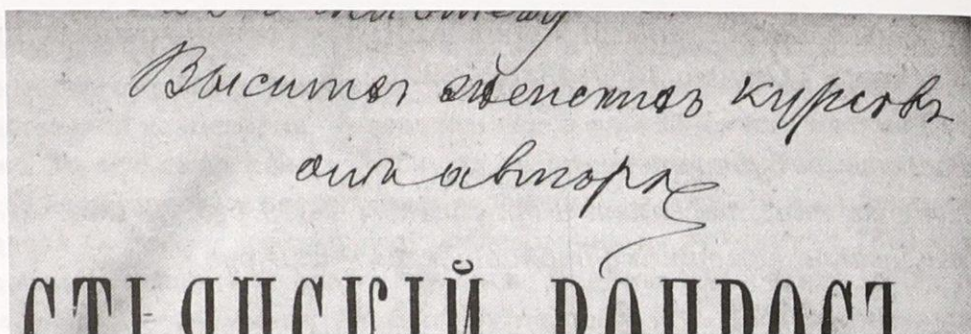 Высшихъ женскихъ курсовъ
отъ автора
СТЬЯНСКІЙ ВОПРОСЪ